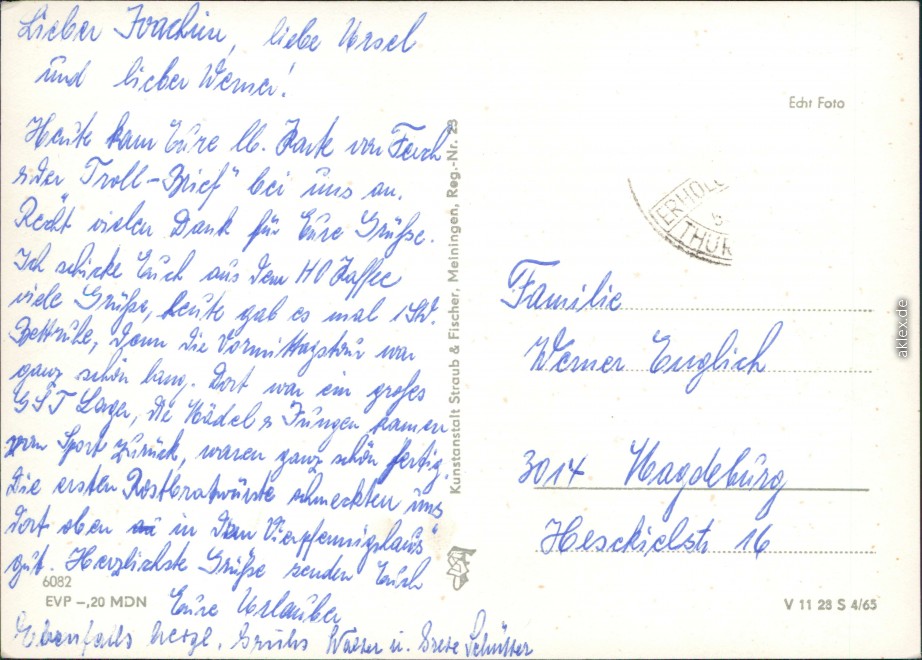 Lieber Joachim, liebe Ursel
und lieber Werner!
Heute kam Eure lb. Karte von Ferch
"der Troll-Brief" bei uns an.
Recht vielen Dank für Eure Grüße.
Ich schicke Euch aus dem HO Kaffee
viele Grüße, heute gab es mal 1 Std.
Bettruhe, denn die Vormittagstour war
ganz schön lang. Dort war ein großes
GST Lager, die Mädel u Jungen kamen
vom Sport zurück, waren ganz schön fertig.
Die ersten Rostbratwürste schmeckten uns
dort oben in dem "Vierpfennigshaus"
gut. Herzlichste Grüße senden Euch
Eure Urlauber
Ebenfalls herzl. Grüße Walter u. Grete Schütter
6082
EVP -,20 MDN
Kunstanstalt Straub & Fischer, Meiningen, Reg.-Nr. 23
Echt Foto
ERHOL
THÜR
Familie
Werner Englich
3014 Magdeburg
Hesekielstr 16
V 11 28 S 4/65
aklex.de